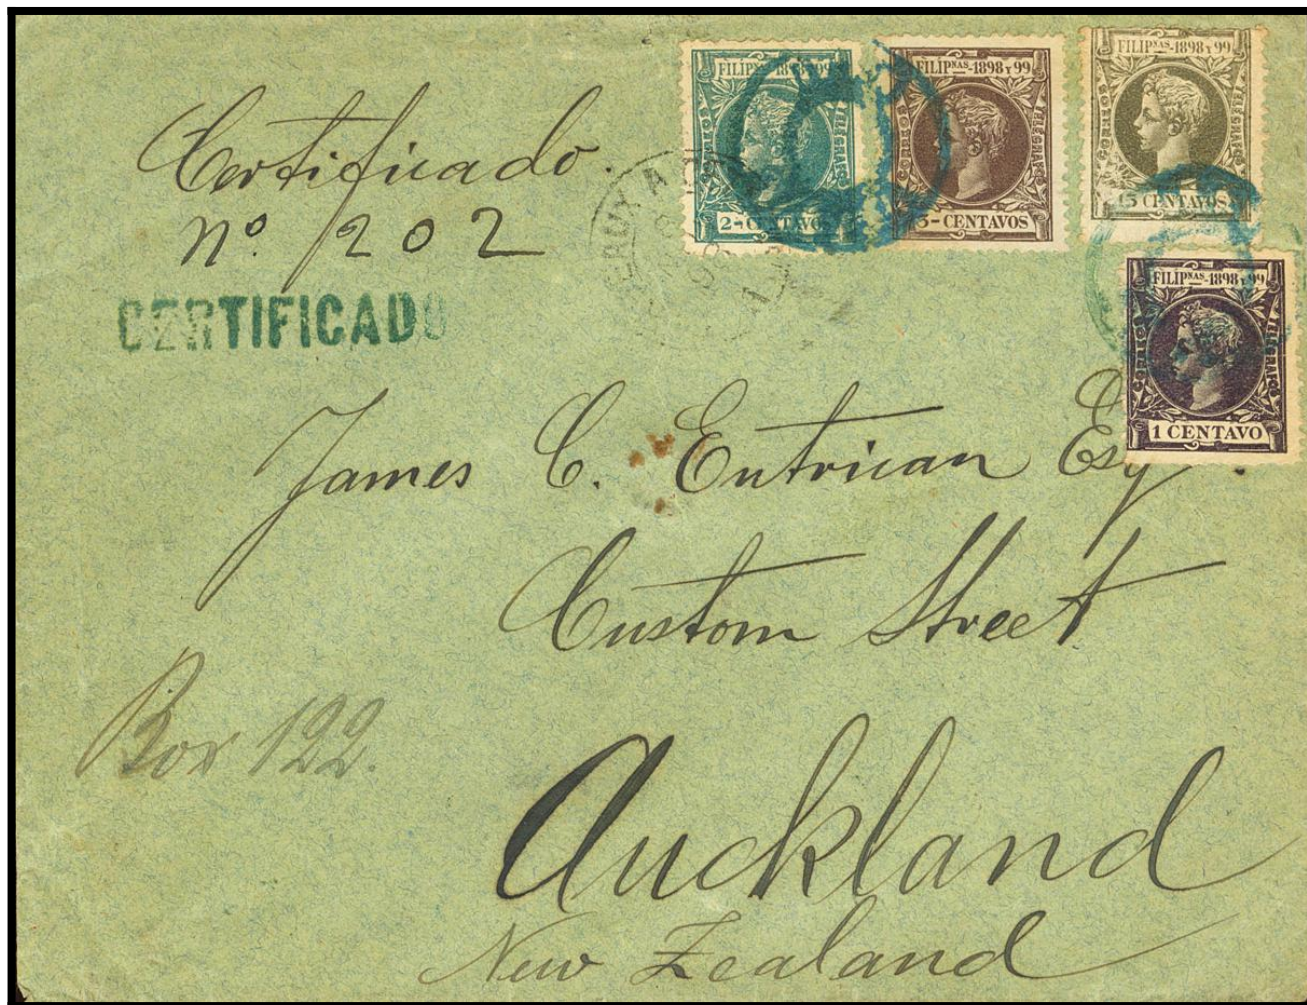 Certificado.
nº 202
CERTIFICADO
FILIPNAS-1898 Y 99
CORREOS
TELEGRAFOS
2-CENTAVOS
FILIPNAS-1898 Y 99
CORREOS
TELEGRAFOS
3-CENTAVOS
FILIPNAS-1898 Y 99
CORREOS
TELEGRAFOS
15 CENTAVOS
FILIPNAS-1898 Y 99
CORREOS
TELEGRAFOS
1 CENTAVO
James C. Entrican Esq.
Custom Street
Box 122.
Auckland
New Zealand